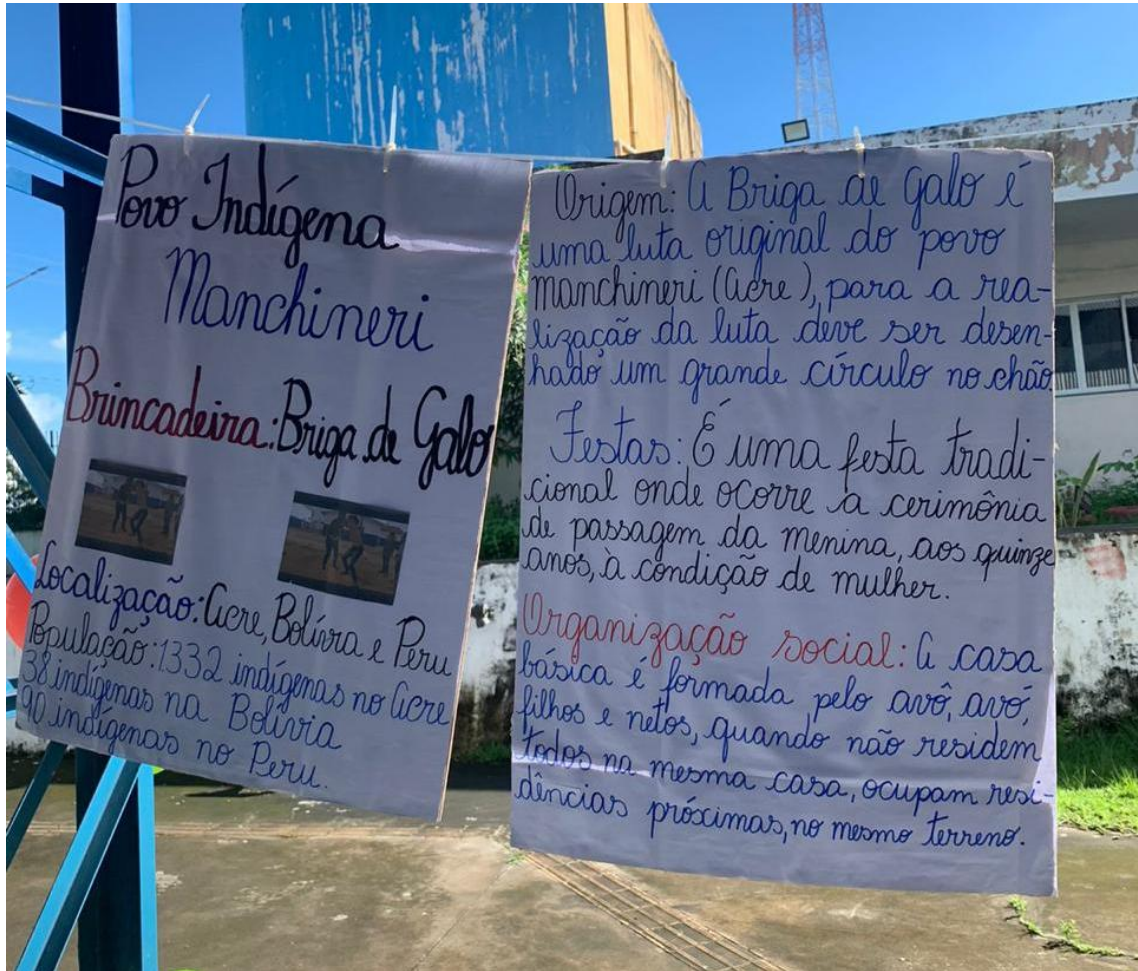 Povo Indígena
Manchineri
Brincadeira: Briga de Galo
Localização: Acre, Bolívia e Peru
População: 1332 indígenas no Acre
38 indígenas na Bolívia
90 indígenas no Peru.
Origem: A Briga de Galo é
uma luta original do povo
Manchineri (Acre), para a rea-
lização da luta deve ser desen-
hado um grande círculo no chão
Festas: É uma festa tradi-
cional onde ocorre a cerimônia
de passagem da menina, aos quinze
anos, à condição de mulher.
Organização social: A casa
básica é formada pelo avô, avó,
filhos e netos, quando não residem
todos na mesma casa, ocupam resi-
dências próximas, no mesmo terreno.